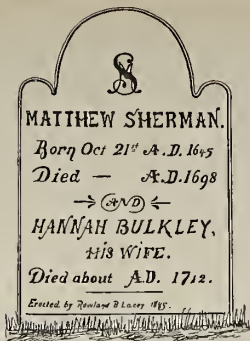 MATTHEW SHERMAN.
Born Oct 21st A.D. 1645
Died — A.D. 1698
AND
HANNAH BULKLEY,
HIS WIFE.
Died about A.D. 1712.
Erected by Rowland B Lacey 1885.